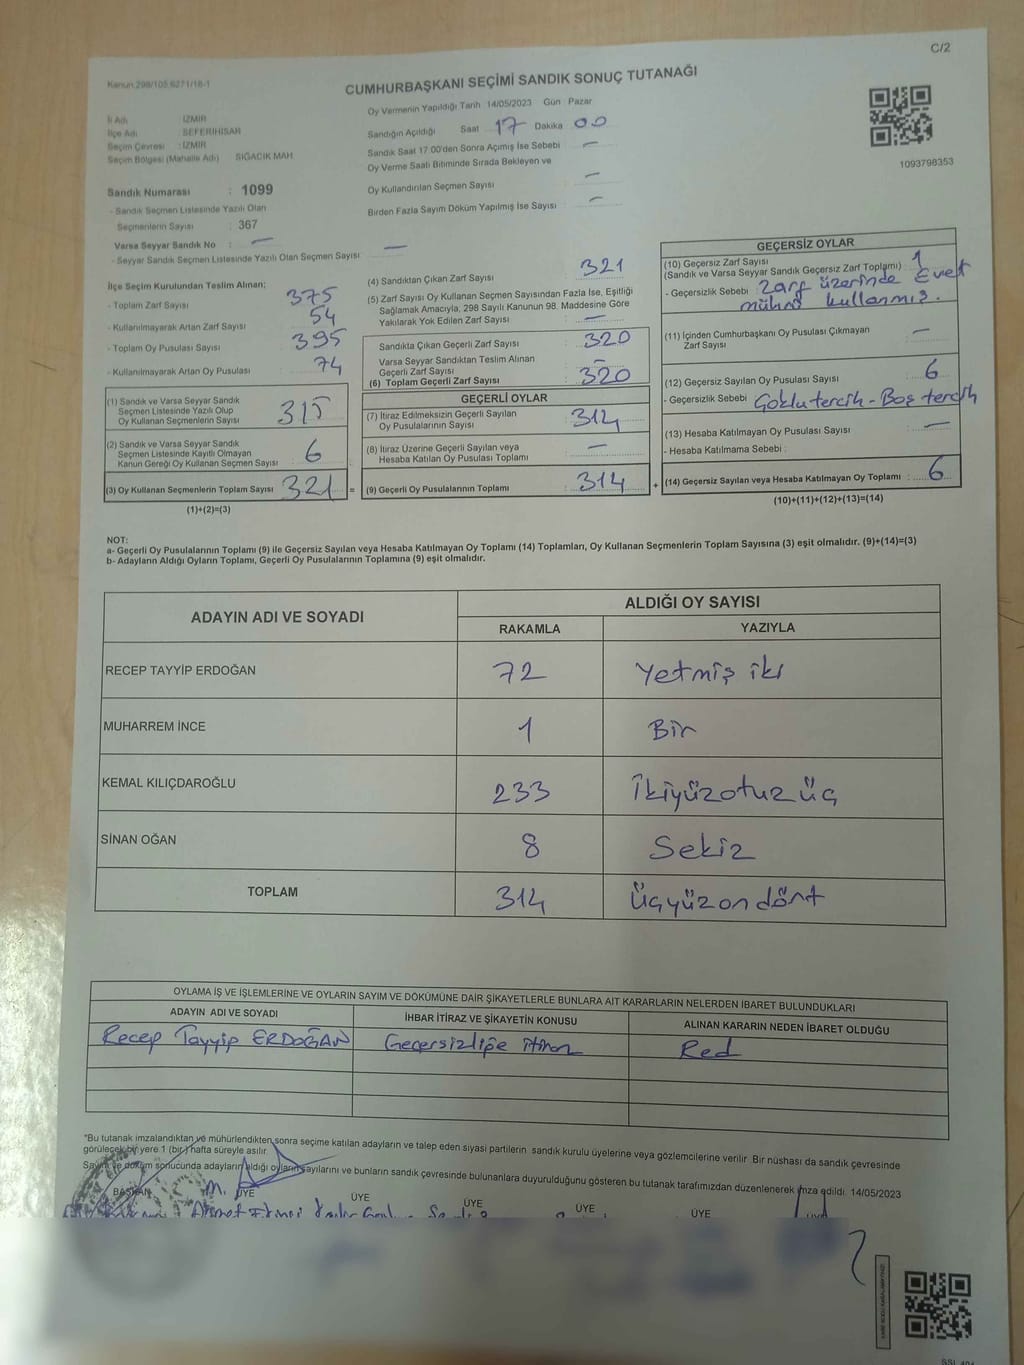 C/2
Kanun 298/105.6271/18-1
CUMHURBAŞKANI SEÇİMİ SANDIK SONUÇ TUTANAĞI
İl Adı İZMİR
İlçe Adı SEFERİHİSAR
Seçim Çevresi : İZMİR
Seçim Bölgesi (Mahalle Adı) SIĞACIK MAH
Sandık Numarası : 1099
- Sandık Seçmen Listesinde Yazılı Olan
Seçmenlerin Sayısı : 367
Varsa Seyyar Sandık No : —
- Seyyar Sandık Seçmen Listesinde Yazılı Olan Seçmen Sayısı —
Oy Vermenin Yapıldığı Tarih 14/05/2023 Gün Pazar
Sandığın Açıldığı Saat 17 Dakika 00
Sandık Saat 17:00'den Sonra Açımış İse Sebebi —
Oy Verme Saati Bitiminde Sırada Bekleyen ve
Oy Kullandırılan Seçmen Sayısı : —
Birden Fazla Sayım Döküm Yapılmış İse Sayısı : —
1093798353
İlçe Seçim Kurulundan Teslim Alınan:
- Toplam Zarf Sayısı 375
- Kullanılmayarak Artan Zarf Sayısı 54
- Toplam Oy Pusulası Sayısı 395
- Kullanılmayarak Artan Oy Pusulası 74
(1) Sandık ve Varsa Seyyar Sandık
Seçmen Listesinde Yazılı Olup
Oy Kullanan Seçmenlerin Sayısı 315
(2) Sandık ve Varsa Seyyar Sandık
Seçmen Listesinde Kayıtlı Olmayan
Kanun Gereği Oy Kullanan Seçmen Sayısı 6
(3) Oy Kullanan Seçmenlerin Toplam Sayısı 321 =
(1)+(2)=(3)
(4) Sandıktan Çıkan Zarf Sayısı 321
(5) Zarf Sayısı Oy Kullanan Seçmen Sayısından Fazla İse, Eşitliği
Sağlamak Amacıyla, 298 Sayılı Kanunun 98. Maddesine Göre
Yakılarak Yok Edilen Zarf Sayısı : —
Sandıkta Çıkan Geçerli Zarf Sayısı : 320
Varsa Seyyar Sandıktan Teslim Alınan
Geçerli Zarf Sayısı : —
(6) Toplam Geçerli Zarf Sayısı : 320
GEÇERLİ OYLAR
(7) İtiraz Edilmeksizin Geçerli Sayılan
Oy Pusulalarının Sayısı : 314
(8) İtiraz Üzerine Geçerli Sayılan veya
Hesaba Katılan Oy Pusulası Toplamı : —
(9) Geçerli Oy Pusulalarının Toplamı : 314 +
GEÇERSİZ OYLAR
(10) Geçersiz Zarf Sayısı
(Sandık ve Varsa Seyyar Sandık Geçersiz Zarf Toplamı) : 1
- Geçersizlik Sebebi Zarf üzerinde Evet
mührü kullanmış.
(11) İçinden Cumhurbaşkanı Oy Pusulası Çıkmayan
Zarf Sayısı : —
(12) Geçersiz Sayılan Oy Pusulası Sayısı : 6
- Geçersizlik Sebebi Çoklu tercih - Boş tercih
(13) Hesaba Katılmayan Oy Pusulası Sayısı : —
- Hesaba Katılmama Sebebi :
(14) Geçersiz Sayılan veya Hesaba Katılmayan Oy Toplamı : 6
(10)+(11)+(12)+(13)=(14)
NOT:
a- Geçerli Oy Pusulalarının Toplamı (9) ile Geçersiz Sayılan veya Hesaba Katılmayan Oy Toplamı (14) Toplamları, Oy Kullanan Seçmenlerin Toplam Sayısına (3) eşit olmalıdır. (9)+(14)=(3)
b- Adayların Aldığı Oyların Toplamı, Geçerli Oy Pusulalarının Toplamına (9) eşit olmalıdır.
ADAYIN ADI VE SOYADI
ALDIĞI OY SAYISI
RAKAMLA YAZIYLA
RECEP TAYYİP ERDOĞAN 72 Yetmiş iki
MUHARREM İNCE 1 Bir
KEMAL KILIÇDAROĞLU 233 İkiyüzotuz üç
SİNAN OĞAN 8 Sekiz
TOPLAM 314 Üçyüz on dört
OYLAMA İŞ VE İŞLEMLERİNE VE OYLARIN SAYIM VE DÖKÜMÜNE DAİR ŞİKAYETLERLE BUNLARA AİT KARARLARIN NELERDEN İBARET BULUNDUKLARI
ADAYIN ADI VE SOYADI İHBAR İTİRAZ VE ŞİKAYETİN KONUSU ALINAN KARARIN NEDEN İBARET OLDUĞU
Recep Tayyip ERDOĞAN Geçersizliğe itiraz Red
*Bu tutanak imzalandıktan ve mühürlendikten sonra seçime katılan adayların ve talep eden siyasi partilerin sandık kurulu üyelerine veya gözlemcilerine verilir. Bir nüshası da sandık çevresinde
görülecek bir yere 1 (bir) hafta süreyle asılır.
Sayım ve döküm sonucunda adayların aldığı oyların sayılarını ve bunların sandık çevresinde bulunanlara duyurulduğunu gösteren bu tutanak tarafımızdan düzenlenerek imza edildi. 14/05/2023
BAŞKAN ÜYE ÜYE ÜYE ÜYE ÜYE ÜYE